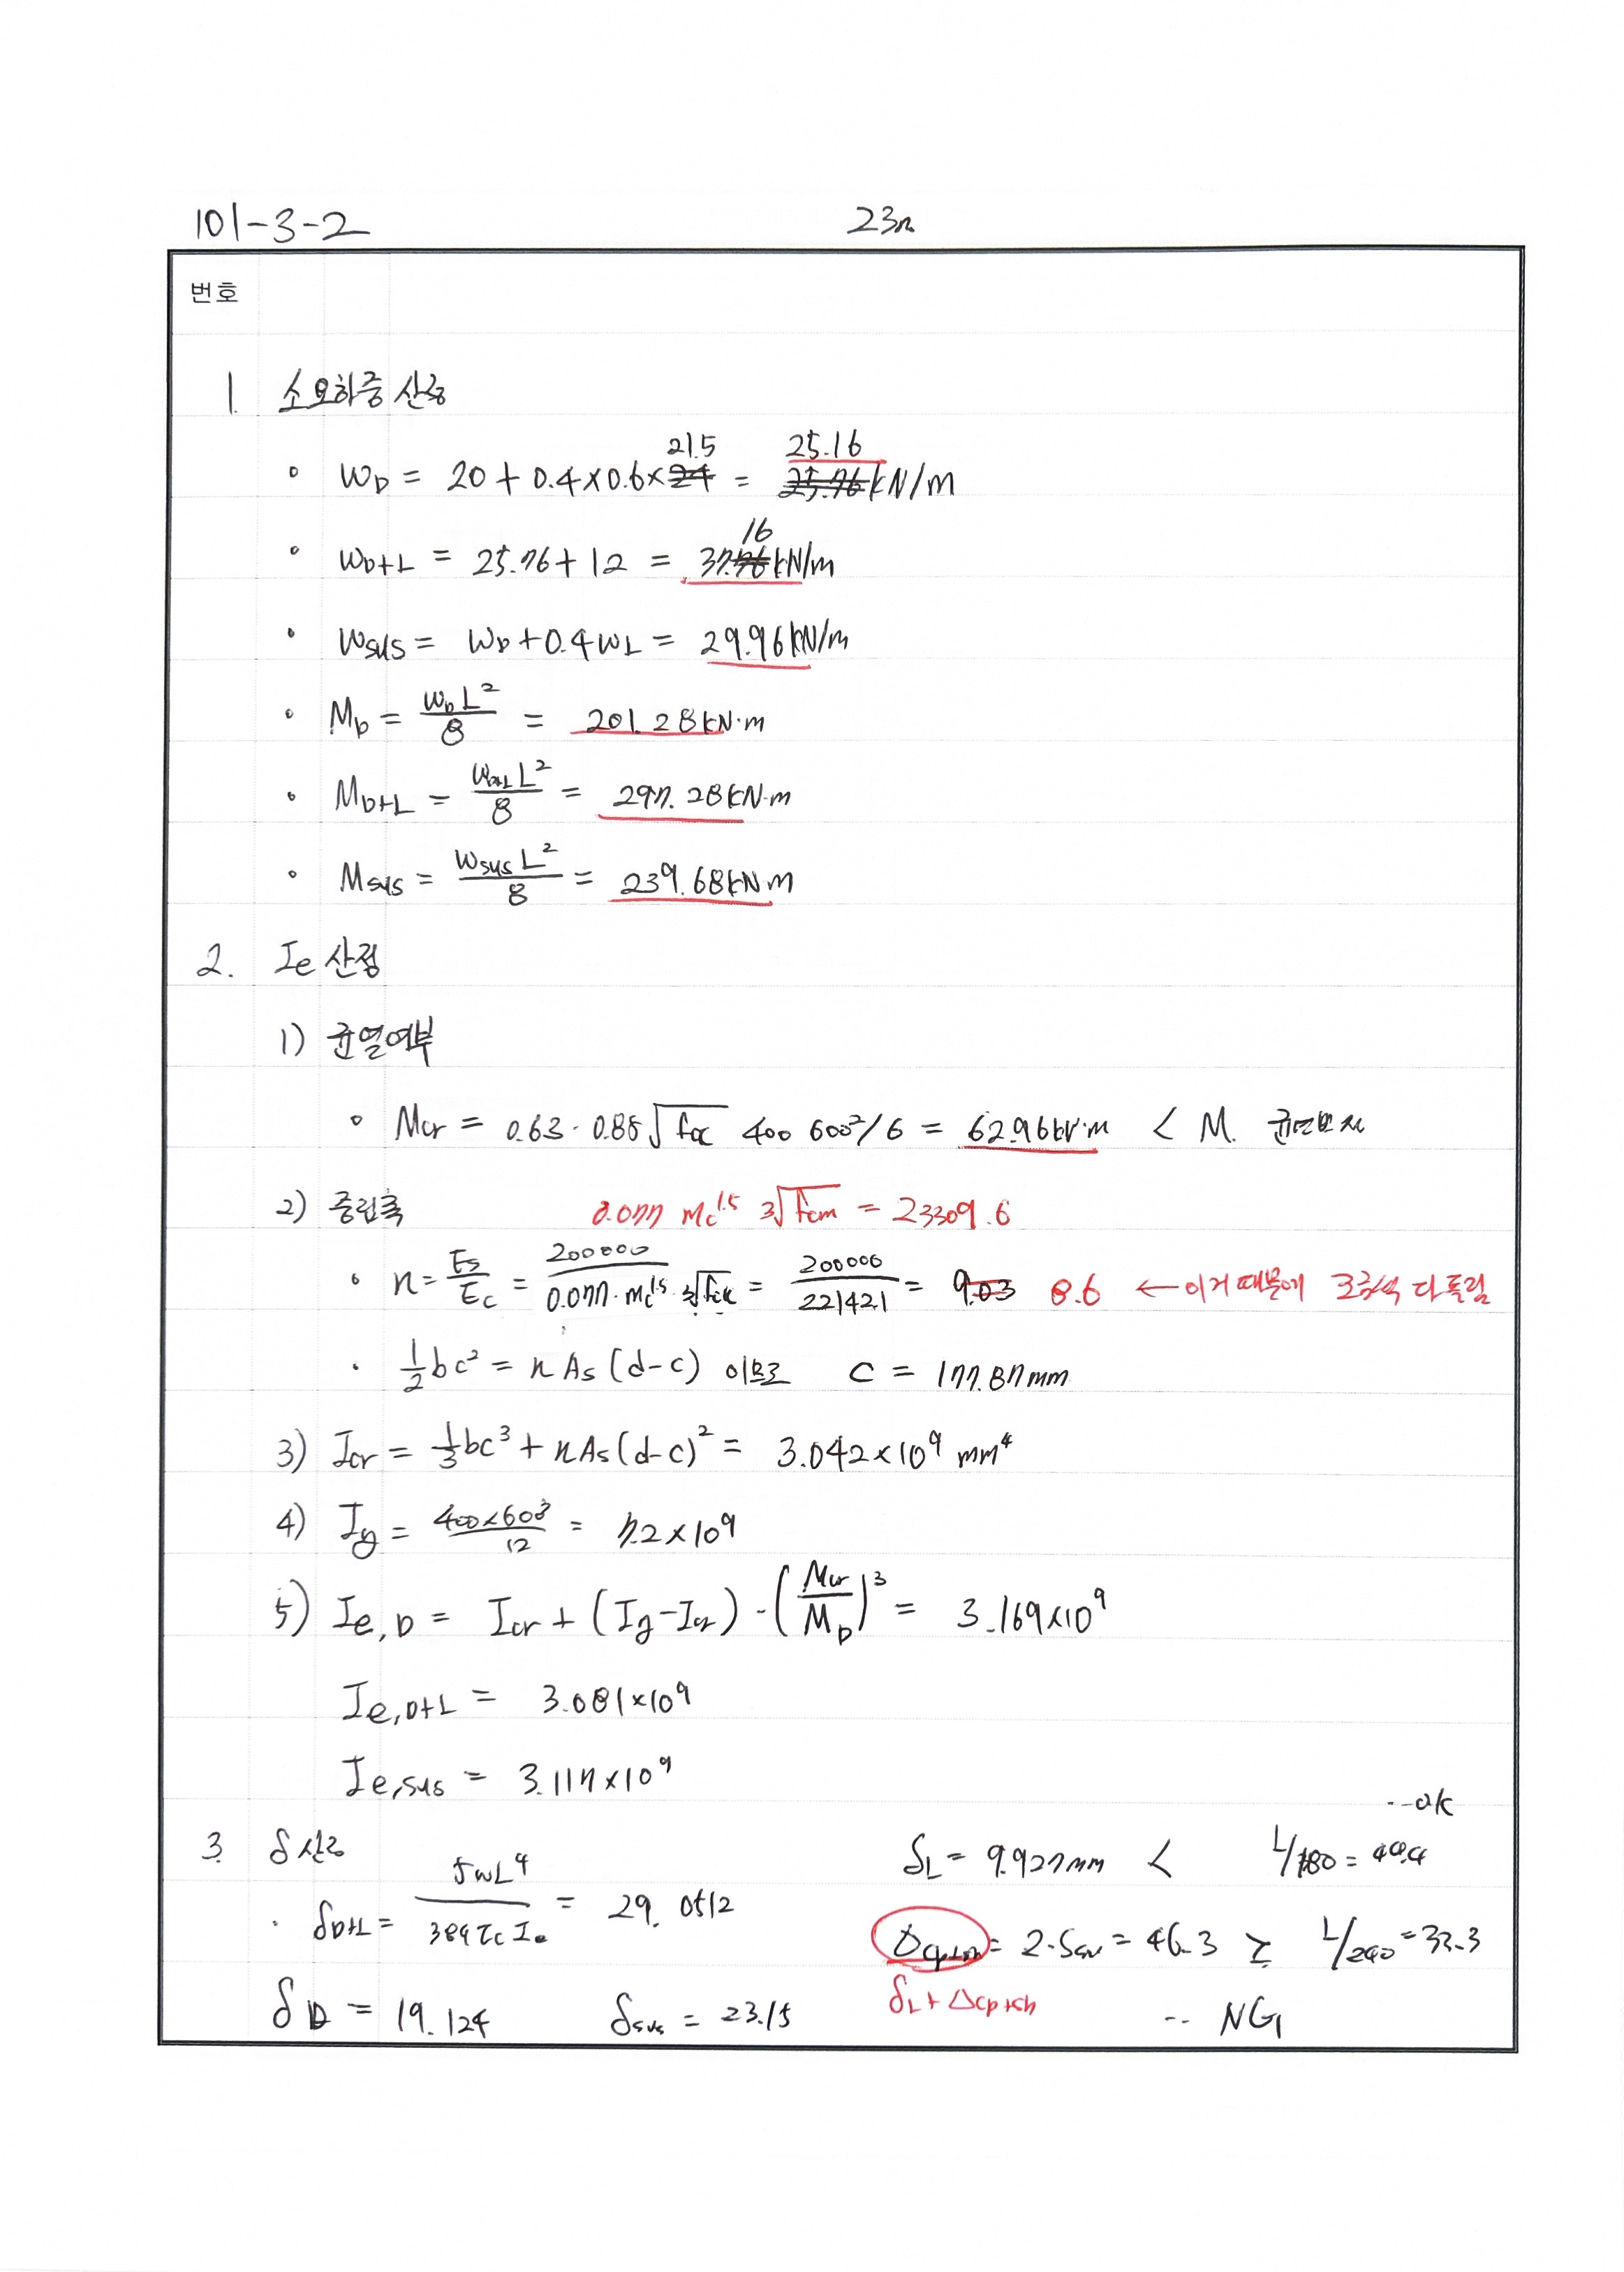 101-3-2 23n
번호
1. 소요하중 산정
21.5 25.16
• W_D = 20 + 0.4×0.6×24 = 25.76 kN/m
16
• W_D+L = 25.76 + 12 = 37.76 kN/m
• W_sus = W_D + 0.4 W_L = 29.96 kN/m
• M_D = W_D L² / 8 = 201.28 kN·m
• M_D+L = W_D+L L² / 8 = 297.28 kN·m
• M_sus = W_sus L² / 8 = 239.68 kN m
2. Ie 산정
1) 균열여부
• Mcr = 0.63 · 0.85 √fck 400 600²/6 = 62.96 kN·m < M.
2) 중립축 0.077 mc^1.5 ³√fcm = 23309.6
• n = Es/Ec = 200000 / 0.077 · mc^1.5 ³√fck = 200000 / 22142.1 = 9.03 8.6 ← 이거 때문에 고급식 다 틀림
• ½bc² = n As (d-c) 이므로 c = 177.87mm
3) Icr = ⅓bc³ + nAs(d-c)² = 3.042×10⁹ mm⁴
4) Ig = 400×600³ / 12 = 7.2×10⁹
5) Ie,D = Icr + (Ig - Icr) · (Mcr / M_D)³ = 3.169×10⁹
Ie,D+L = 3.081×10⁹
Ie,sus = 3.117×10⁹
--ok
3. δ 산정 δL = 9.927mm < L/180 = 44.4
• δD+L = 5wL⁴ / 384 Ec Ie = 29.0512
Δcp+sh = 2·δsus = 46.3 ≥ L/240 = 33.3
δL + Δcp+sh
δD = 19.124 δsus = 23.15 -- NG